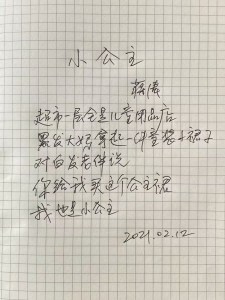 小公主
超市一层全是儿童用品店
黑发大妈拿起一件童装小裙子
对白发老伴说
你给我买这个公主裙
我也是小公主
2021.02.12